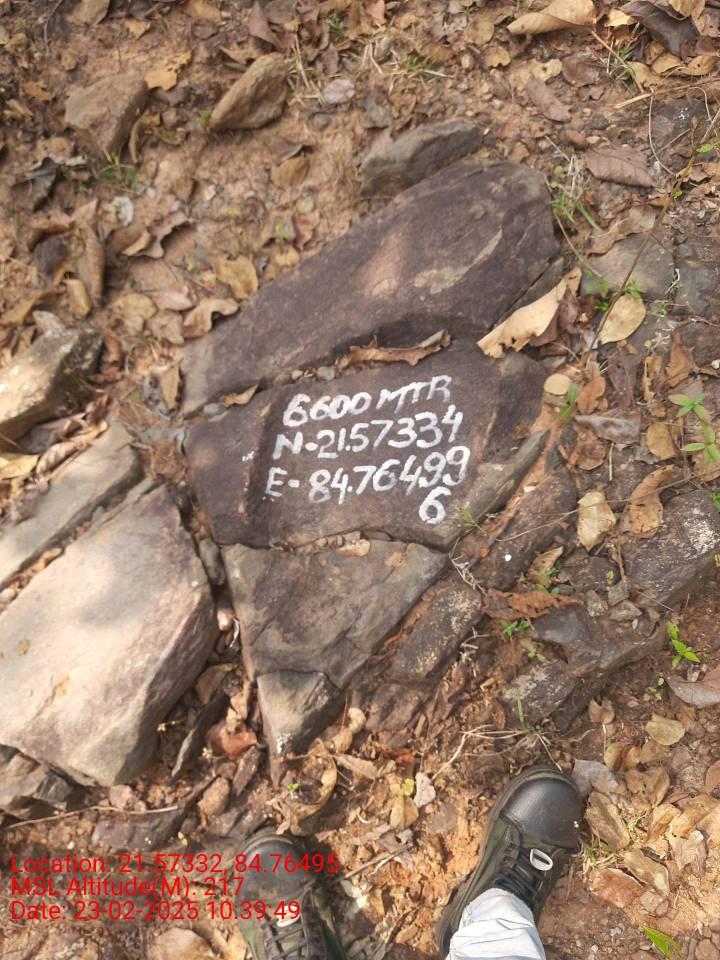 6600 MTR
N-21.57334
E-84.76499
6
Location: 21.57332, 84.76495
MSL Altitude(M): 217
Date: 23-02-2025 10:39:49